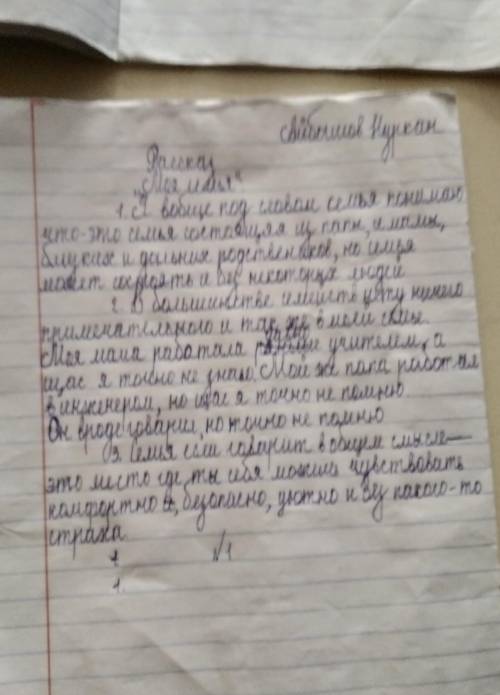 Нуркан
Рассказ
"Моя семья"
1. Я вобще под словом семья понимаю
что-это семья состоящая из папы, и мамы,
близких и дальних родствеников, но семья
может состоять и без некоторых людей
2. В большинстве семьств нету ничего
примечательного и так же в моей семье.
Моя мама работала учителем, а
щас я точно не знаю. Мой же папа работал
инженером, но щас я точно не помню.
Он вроде говорил, но точно не помню
3. Семья если говорит в общем смысле—
это место где ты себя можешь чувствовать
комфортно, безопасно, уютно и без какого-то
страха
1 №1
1.